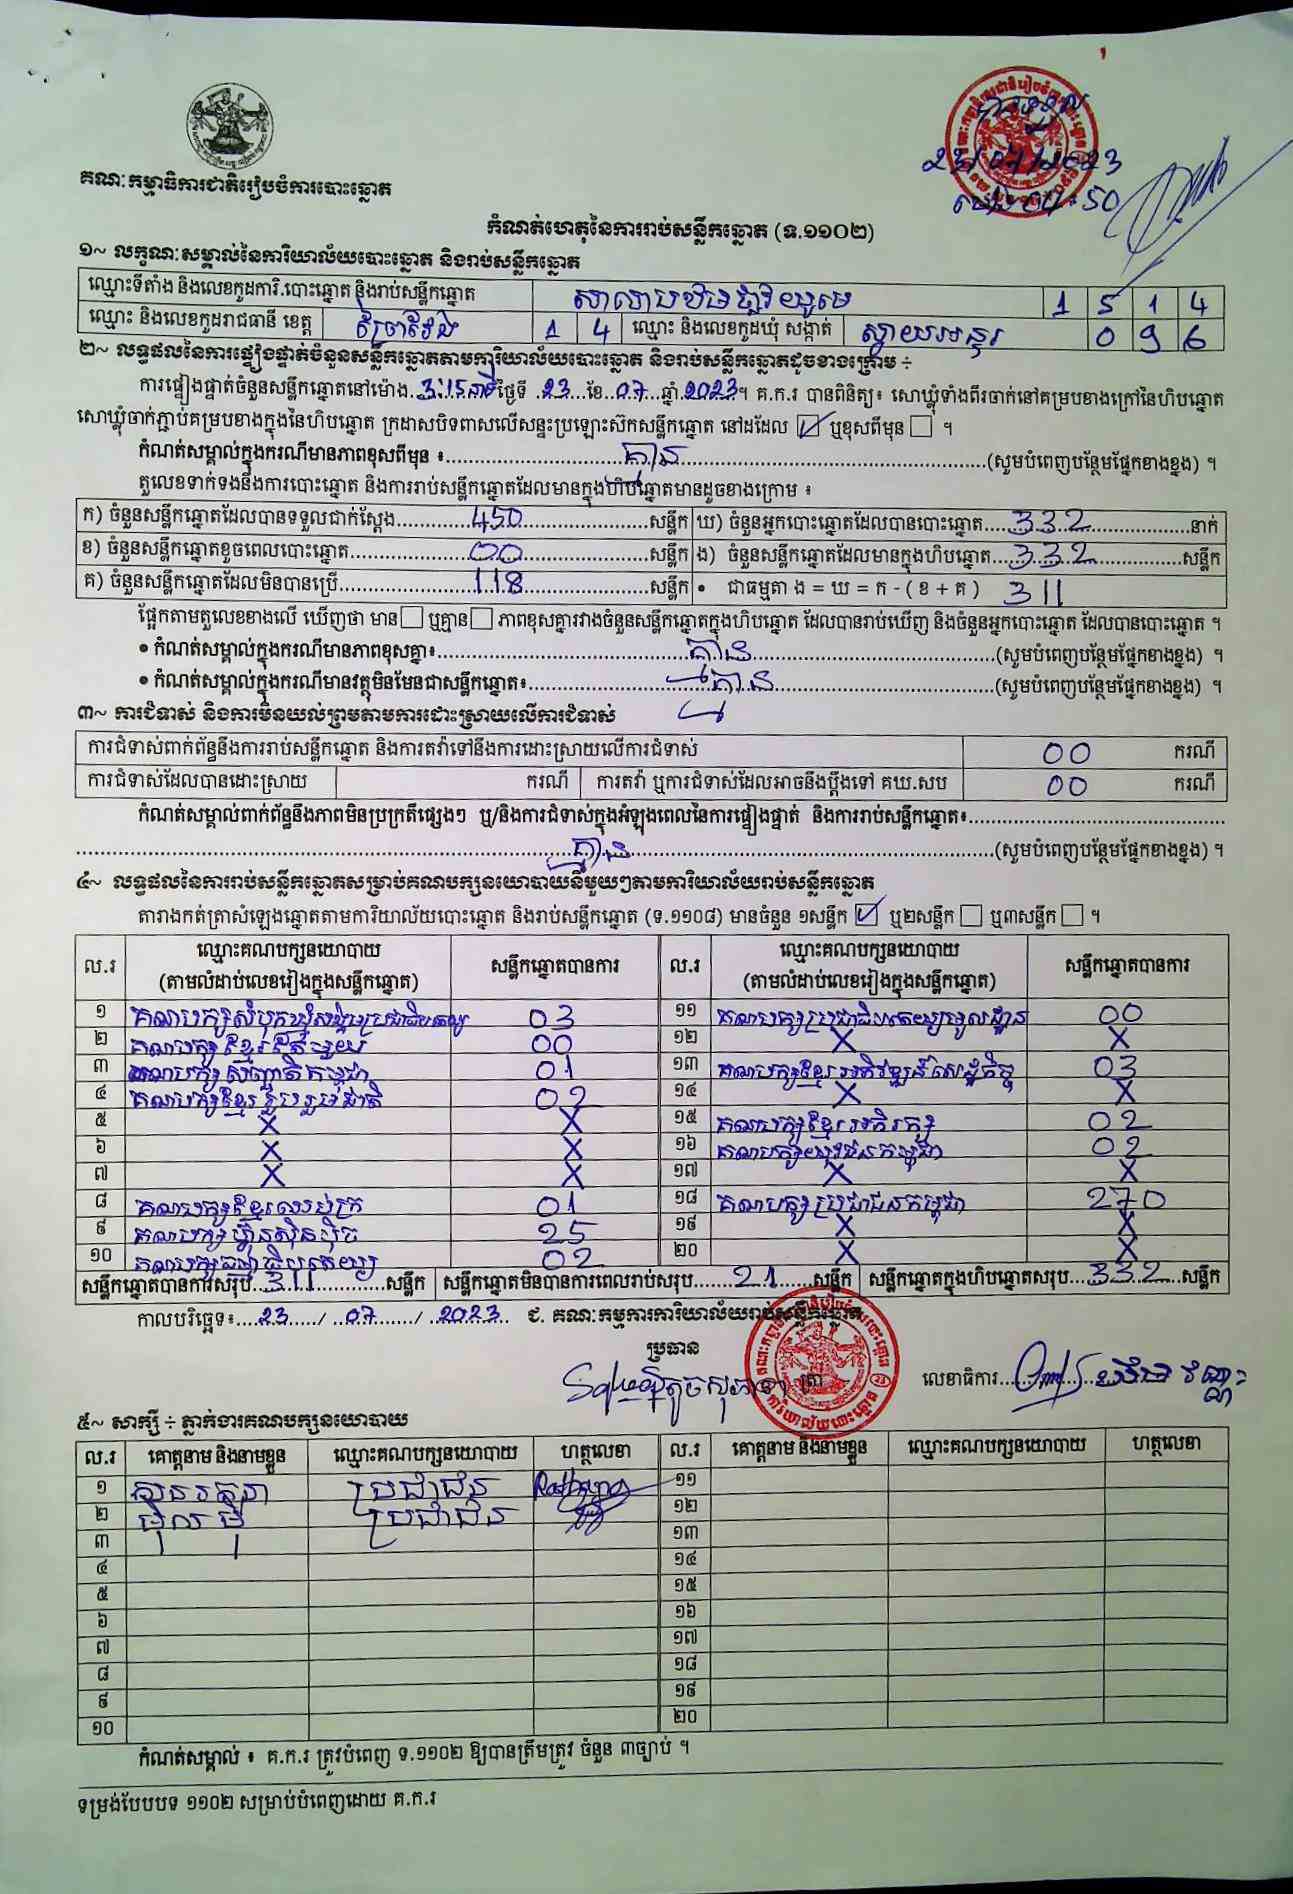 គណៈកម្មាធិការជាតិរៀបចំការបោះឆ្នោត
23/07/2023
កំណត់ហេតុនៃការរាប់សន្លឹកឆ្នោត (ទ.១១០២)
១~ លក្ខណៈសម្គាល់នៃការិយាល័យបោះឆ្នោត និងរាប់សន្លឹកឆ្នោត
ឈ្មោះទីតាំង និងលេខកូដការិ.បោះឆ្នោត និងរាប់សន្លឹកឆ្នោត 1 5 1 4
ឈ្មោះ និងលេខកូដរាជធានី ខេត្ត ព្រៃវែង 1 4 ឈ្មោះ និងលេខកូដឃុំ សង្កាត់ ស្វាយអន្ទរ 0 9 6
២~ លទ្ធផលនៃការផ្ទៀងផ្ទាត់ចំនួនសន្លឹកឆ្នោតតាមការិយាល័យបោះឆ្នោត និងរាប់សន្លឹកឆ្នោតដូចខាងក្រោម ÷
ការផ្ទៀងផ្ទាត់ចំនួនសន្លឹកឆ្នោតនៅម៉ោង 3:15 នាទី ថ្ងៃទី 23 ខែ 07 ឆ្នាំ 2023។ គ.ក.រ បានពិនិត្យ៖ សោឃ្លុំទាំងពីរចាក់នៅគម្របខាងក្រៅនៃហិបឆ្នោត
សោឃ្លុំចាក់ភ្ជាប់គម្របខាងក្នុងនៃហិបឆ្នោត ក្រដាសបិទពាសលើសន្ទះប្រឡោះស៊កសន្លឹកឆ្នោត នៅដដែល ☑ ឬខុសពីមុន ☐ ។
កំណត់សម្គាល់ក្នុងករណីមានភាពខុសពីមុន ៖ គ្មាន (សូមបំពេញបន្ថែមផ្នែកខាងខ្នង) ។
តួលេខទាក់ទងនឹងការបោះឆ្នោត និងការរាប់សន្លឹកឆ្នោតដែលមានក្នុងហិបឆ្នោតមានដូចខាងក្រោម ៖
ក) ចំនួនសន្លឹកឆ្នោតដែលបានទទួលជាក់ស្តែង 450 សន្លឹក ឃ) ចំនួនអ្នកបោះឆ្នោតដែលបានបោះឆ្នោត 332 នាក់
ខ) ចំនួនសន្លឹកឆ្នោតខូចពេលបោះឆ្នោត 00 សន្លឹក ង) ចំនួនសន្លឹកឆ្នោតដែលមានក្នុងហិបឆ្នោត 332 សន្លឹក
គ) ចំនួនសន្លឹកឆ្នោតដែលមិនបានប្រើ 118 សន្លឹក • ជាធម្មតា ង = ឃ = ក - ( ខ + គ ) 311
ផ្អែកតាមតួលេខខាងលើ ឃើញថា មាន ☐ ឬគ្មាន ☐ ភាពខុសគ្នារវាងចំនួនសន្លឹកឆ្នោតក្នុងហិបឆ្នោត ដែលបានរាប់ឃើញ និងចំនួនអ្នកបោះឆ្នោត ដែលបានបោះឆ្នោត ។
• កំណត់សម្គាល់ក្នុងករណីមានភាពខុសគ្នា៖ គ្មាន (សូមបំពេញបន្ថែមផ្នែកខាងខ្នង) ។
• កំណត់សម្គាល់ក្នុងករណីមានវត្ថុមិនមែនជាសន្លឹកឆ្នោត៖ គ្មាន (សូមបំពេញបន្ថែមផ្នែកខាងខ្នង) ។
៣~ ការជំទាស់ និងការមិនយល់ព្រមតាមការដោះស្រាយលើការជំទាស់
ការជំទាស់ពាក់ព័ន្ធនឹងការរាប់សន្លឹកឆ្នោត និងការតវ៉ាទៅនឹងការដោះស្រាយលើការជំទាស់ 00 ករណី
ការជំទាស់ដែលបានដោះស្រាយ ករណី ការតវ៉ា ឬការជំទាស់ដែលអាចនឹងប្តឹងទៅ គឃ.សប 00 ករណី
កំណត់សម្គាល់ពាក់ព័ន្ធនឹងភាពមិនប្រក្រតីផ្សេងៗ ឬ/និងការជំទាស់ក្នុងអំឡុងពេលនៃការផ្ទៀងផ្ទាត់ និងការរាប់សន្លឹកឆ្នោត៖
គ្មាន (សូមបំពេញបន្ថែមផ្នែកខាងខ្នង) ។
៤~ លទ្ធផលនៃការរាប់សន្លឹកឆ្នោតសម្រាប់គណបក្សនយោបាយនីមួយៗតាមការិយាល័យរាប់សន្លឹកឆ្នោត
តារាងកត់ត្រាសំឡេងឆ្នោតតាមការិយាល័យបោះឆ្នោត និងរាប់សន្លឹកឆ្នោត (ទ.១១០៨) មានចំនួន ១សន្លឹក ☑ ឬ២សន្លឹក ☐ ឬ៣សន្លឹក ☐ ។
ល.រ ឈ្មោះគណបក្សនយោបាយ (តាមលំដាប់លេខរៀងក្នុងសន្លឹកឆ្នោត) សន្លឹកឆ្នោតបានការ ល.រ ឈ្មោះគណបក្សនយោបាយ (តាមលំដាប់លេខរៀងក្នុងសន្លឹកឆ្នោត) សន្លឹកឆ្នោតបានការ
១ គណបក្សសំបុកឃ្មុំសង្គមប្រជាធិបតេយ្យ 03 ១១ គណបក្សប្រជាធិបតេយ្យមូលដ្ឋាន 00
២ គណបក្សខ្មែរតែមួយ 00 ១២ X X
៣ គណបក្សសញ្ជាតិកម្ពុជា 01 ១៣ គណបក្សខ្មែរអភិវឌ្ឍន៍សេដ្ឋកិច្ច 03
៤ គណបក្សខ្មែររួបរួមជាតិ 02 ១៤ X X
៥ X X ១៥ គណបក្សខ្មែរអភិរក្ស 02
៦ X X ១៦ គណបក្សយុវជនកម្ពុជា 02
៧ X X ១៧ X X
៨ គណបក្សខ្មែរឈប់ក្រ 01 ១៨ គណបក្សប្រជាជនកម្ពុជា 270
៩ គណបក្សហ៊្វុនស៊ិនប៉ិច 25 ១៩ X X
១០ គណបក្សធម្មាធិបតេយ្យ 02 ២០ X X
សន្លឹកឆ្នោតបានការសរុប 311 សន្លឹក សន្លឹកឆ្នោតមិនបានការពេលរាប់សរុប 21 សន្លឹក សន្លឹកឆ្នោតក្នុងហិបឆ្នោតសរុប 332 សន្លឹក
កាលបរិច្ឆេទ៖ 23 / 07 / 2023 ជ. គណៈកម្មការការិយាល័យរាប់សន្លឹកឆ្នោត
ប្រធាន
ត្រា លេខាធិការ
៥~ សាក្សី ÷ ភ្នាក់ងារគណបក្សនយោបាយ
ល.រ គោត្តនាម និងនាមខ្លួន ឈ្មោះគណបក្សនយោបាយ ហត្ថលេខា ល.រ គោត្តនាម និងនាមខ្លួន ឈ្មោះគណបក្សនយោបាយ ហត្ថលេខា
១ ប្រជាជន ១១
២ ប្រជាជន ១២
៣ ១៣
៤ ១៤
៥ ១៥
៦ ១៦
៧ ១៧
៨ ១៨
៩ ១៩
១០ ២០
កំណត់សម្គាល់ ៖ គ.ក.រ ត្រូវបំពេញ ទ.១១០២ ឱ្យបានត្រឹមត្រូវ ចំនួន ៣ច្បាប់ ។
ទម្រង់បែបបទ ១១០២ សម្រាប់បំពេញដោយ គ.ក.រ